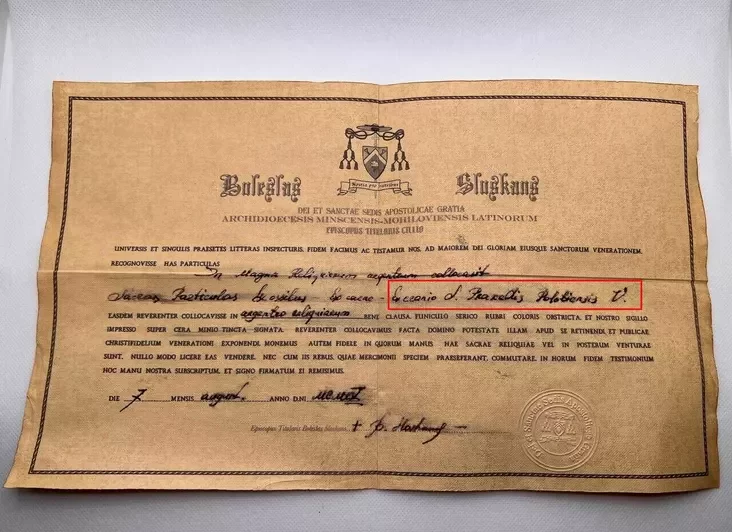 Buleslas Sluskans
DEI ET SANCTAE SEDIS APOSTOLICAE GRATIA
ARCHIDIOECESIS MINSCENSIS-MOHILOVIENSIS LATINORUM
EPISCOPUS TITULORIS CILLIO
UNIVERSIS ET SINGULIS PRAESETES LITTERAS INSPECTURIS, FIDEM FACIMUS AC TESTAMUR NOS, AD MAIOREM DEI GLORIAM EIUSQUE SANCTORUM VENERATIONEM,
RECOGNOVISSE HAS PARTICULAS
In Magna argenteum collocavit
Sacras Particulas Ex Ossibus S. Praxedis V.
EASDEM REVERENTER COLLOCAVISSE IN argenteo BENE CLAUSA, FUNICULO SERICO RUBRI COLORIS OBSTRICTA, ET NOSTRO SIGILLO
IMPRESSO SUPER CERA MINIO TINCTA SIGNATA. REVERENTER COLLOCAVIMUS FACTA DOMINO POTESTATE ILLAM APUD SE RETINENDI, ET PUBLICAE
CHRISTIFIDELIUM VENERATIONI EXPONENDI MONEMUS AUTEM FIDELE IN QUORUM MANUS NAE SACRAE RELIQUIAE VEL IN POSTERUM VENTURAE
SUNT, NULLO MODO LICERE EAS VENDERE, NEC CUM IIS REBUS, QUAE MERCIMONII SPECIEM PRAESEFERANT, COMMUTARE, IN HORUM FIDEM TESTIMONIUM
NOC MANU NOSTRA SUBSCRIPTUM, ET SIGNO FIRMATUM EI REMISIMUS.
DIE 7 MENSIS august. ANNO D.NI
Episcopus Titularis Buleslas Sluskans